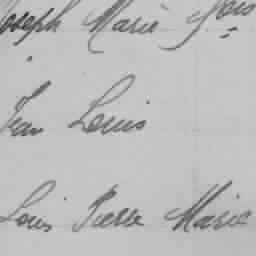 Joseph Marie
Jean Louis
Louis Pierre Marie